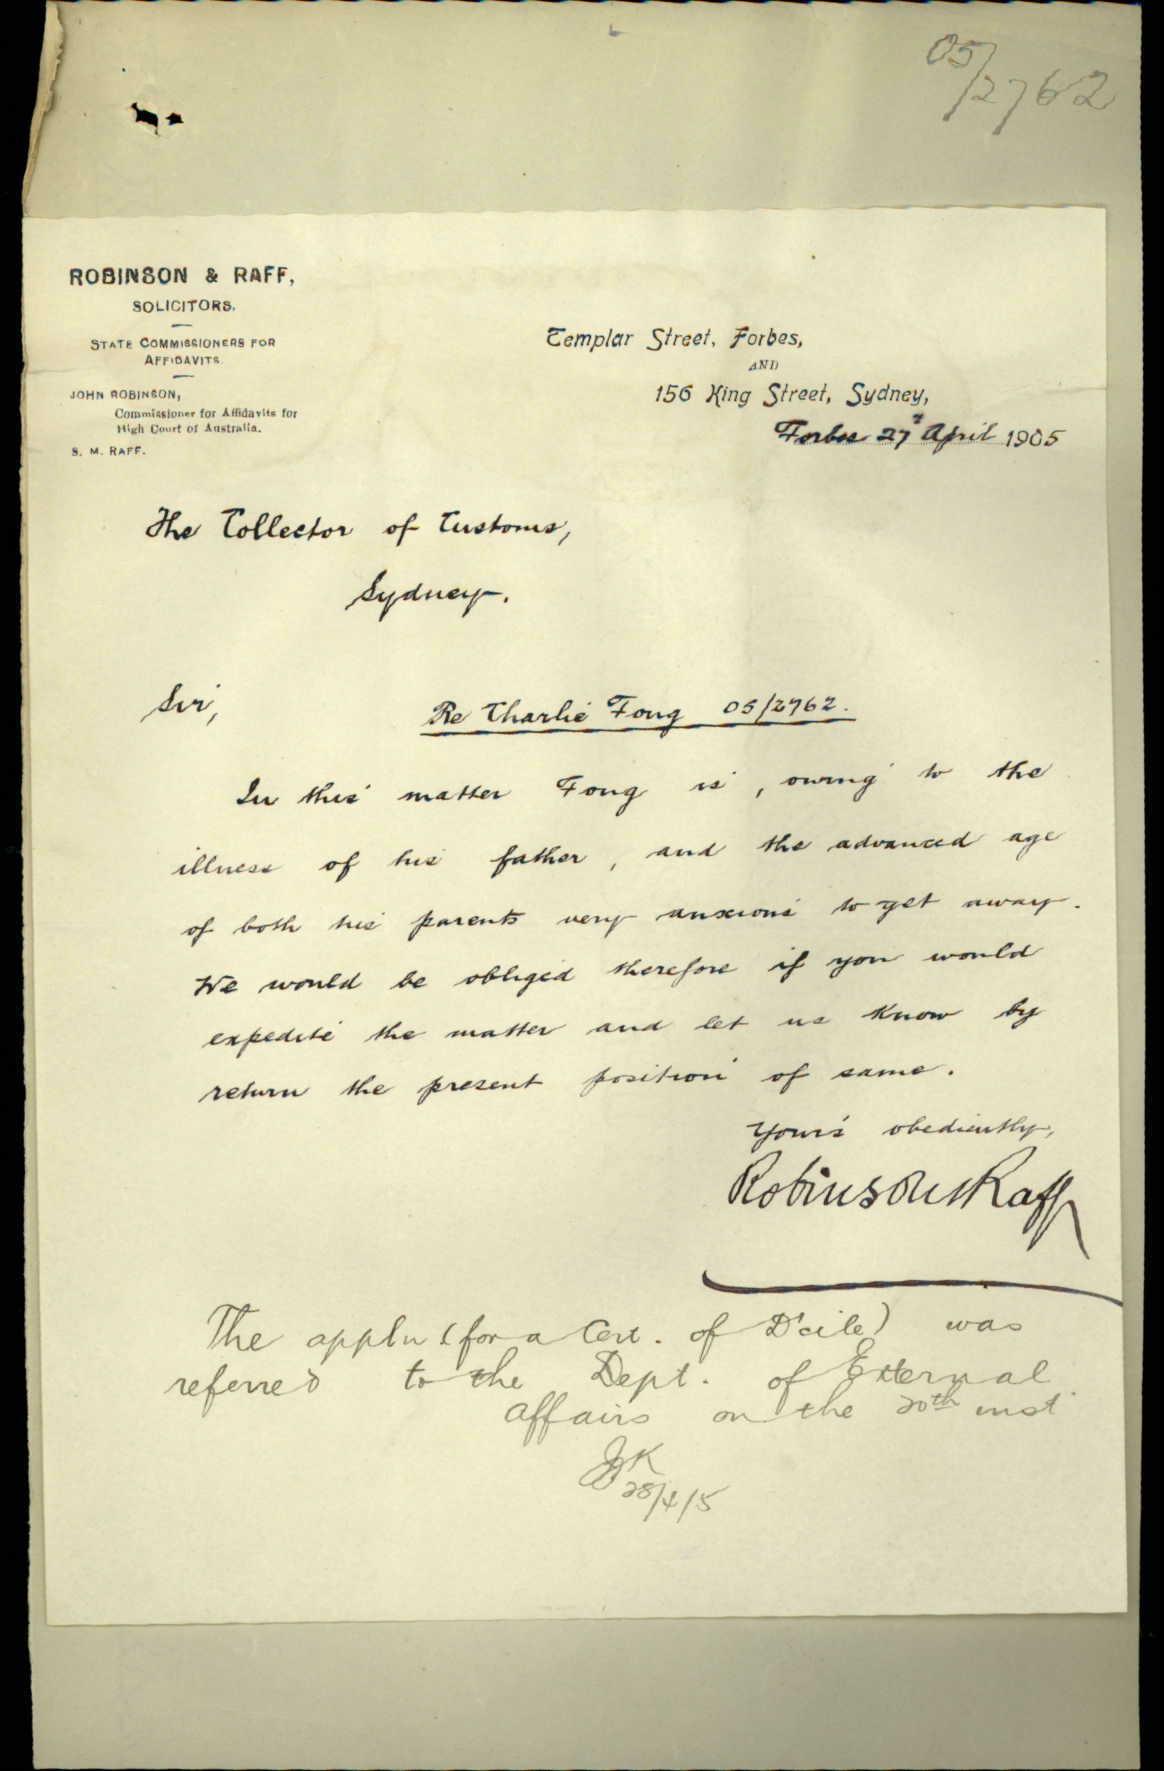 05/2762
ROBINSON & RAFF,
SOLICITORS.
STATE COMMISSIONERS FOR
AFFIDAVITS.
JOHN ROBINSON,
Commissioner for Affidavits for
High Court of Australia.
S. M. RAFF.
Templar Street, Forbes,
AND
156 King Street, Sydney,
Forbes 27th April 1905
The Collector of Customs,
Sydney.
Sir,
Re Charlie Fong 05/2762.
In this matter Fong is, owing to the
illness of his father, and the advanced age
of both his parents very anxious to get away.
We would be obliged therefore if you would
expedite the matter and let us know by
return the present position of same.
Yours obediently,
Robinson & Raff
The appln (for a Cert. of D'cile) was
referred to the Dept. of External
Affairs on the 20th inst
28/4/5